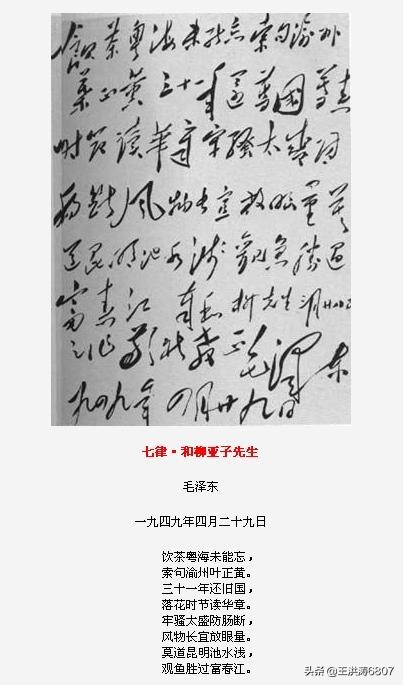 飲茶粤海未能忘索句渝州
葉正黄三十一年還舊國落花
時節讀華章牢騷太盛防
腸斷風物长宜放眼量莫
道昆明池水浅觀魚勝過
富春江 奉和柳先生三月廿八日
之作敬祈教正 毛泽东
一九四九年四月廿九日
七律·和柳亚子先生
毛泽东
一九四九年四月二十九日
饮茶粤海未能忘，
索句渝州叶正黄。
三十一年还旧国，
落花时节读华章。
牢骚太盛防肠断，
风物长宜放眼量。
莫道昆明池水浅，
观鱼胜过富春江。
头条 @王洪涛6807